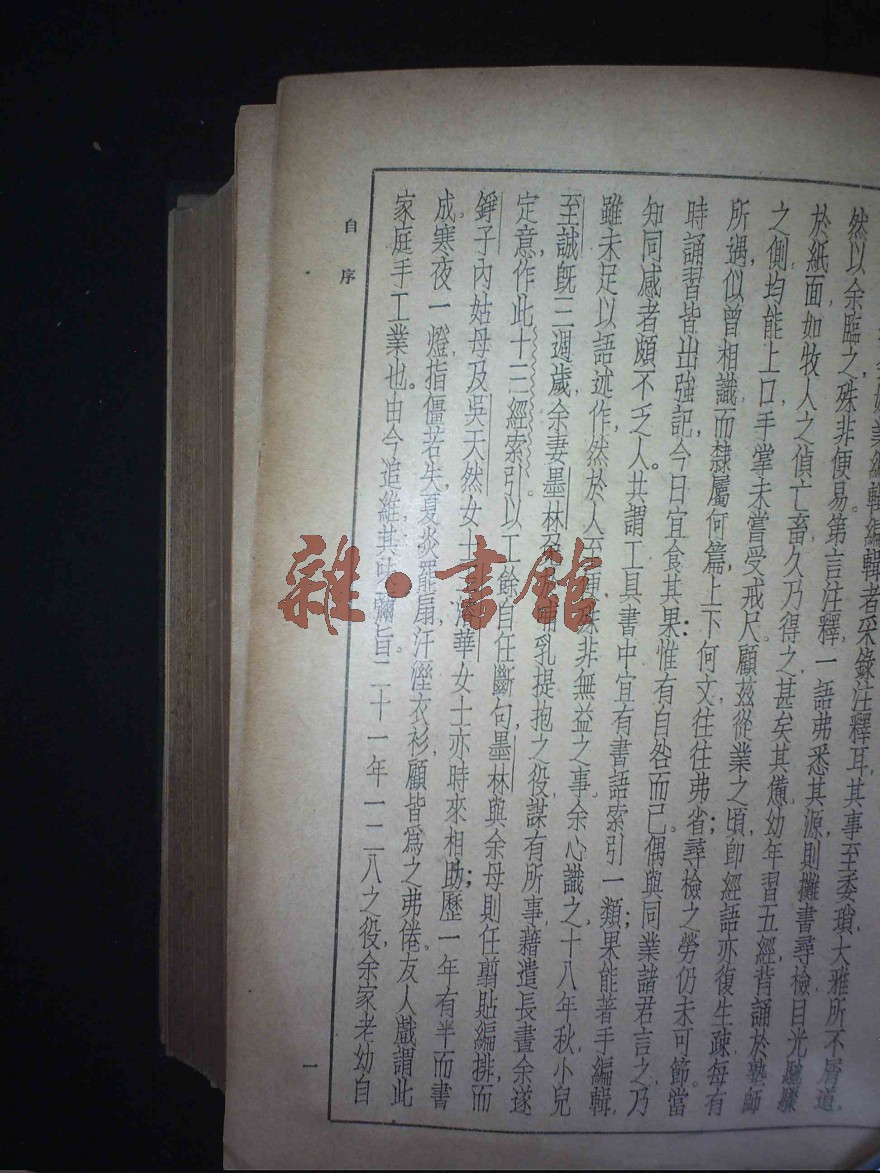 然以余臨之，殊非便易。第言注釋，一語弗悉其源，則攤書尋檢，目光馳驟
於紙面，如牧人之偵亡畜，久乃得之，甚矣其憊。幼年習五經，背誦於塾師
之側，均能上口，手掌未嘗受戒尺。顧茲從業之頃，即經語亦復生疎，每有
所遇，似曾相識，而隸屬何篇，上下何文，往往弗省；尋檢之勞，仍未可節。當
時誦習，皆出強記，今日宜食其果，惟有自咎而已。偶與同業諸君言之，乃
知同感者頗不乏人。共謂工具書中宜有書語索引一類；果能著手編輯，
雖未足以語述作，然於人至便，殊非無益之事。余心識之。十八年秋，小兒
至誠旣三週歲，余妻墨林哺乳提抱之役，謀有所事，藉遣長晝，余遂
定意作此十三經索引。以工餘自任斷句，墨林與余母則任剪貼編排，而
錚子內姑母及吳天然女士華女士亦時來相助；歷一年有半而書
成。寒夜一燈，指僵若失，夏炎罷扇，汗溼衣衫，顧皆爲之弗倦。友人戲謂此
家庭手工業也。由今追維，其味彌旨。二十一年一二八之役，余家老幼自
自序
一
雜·書館